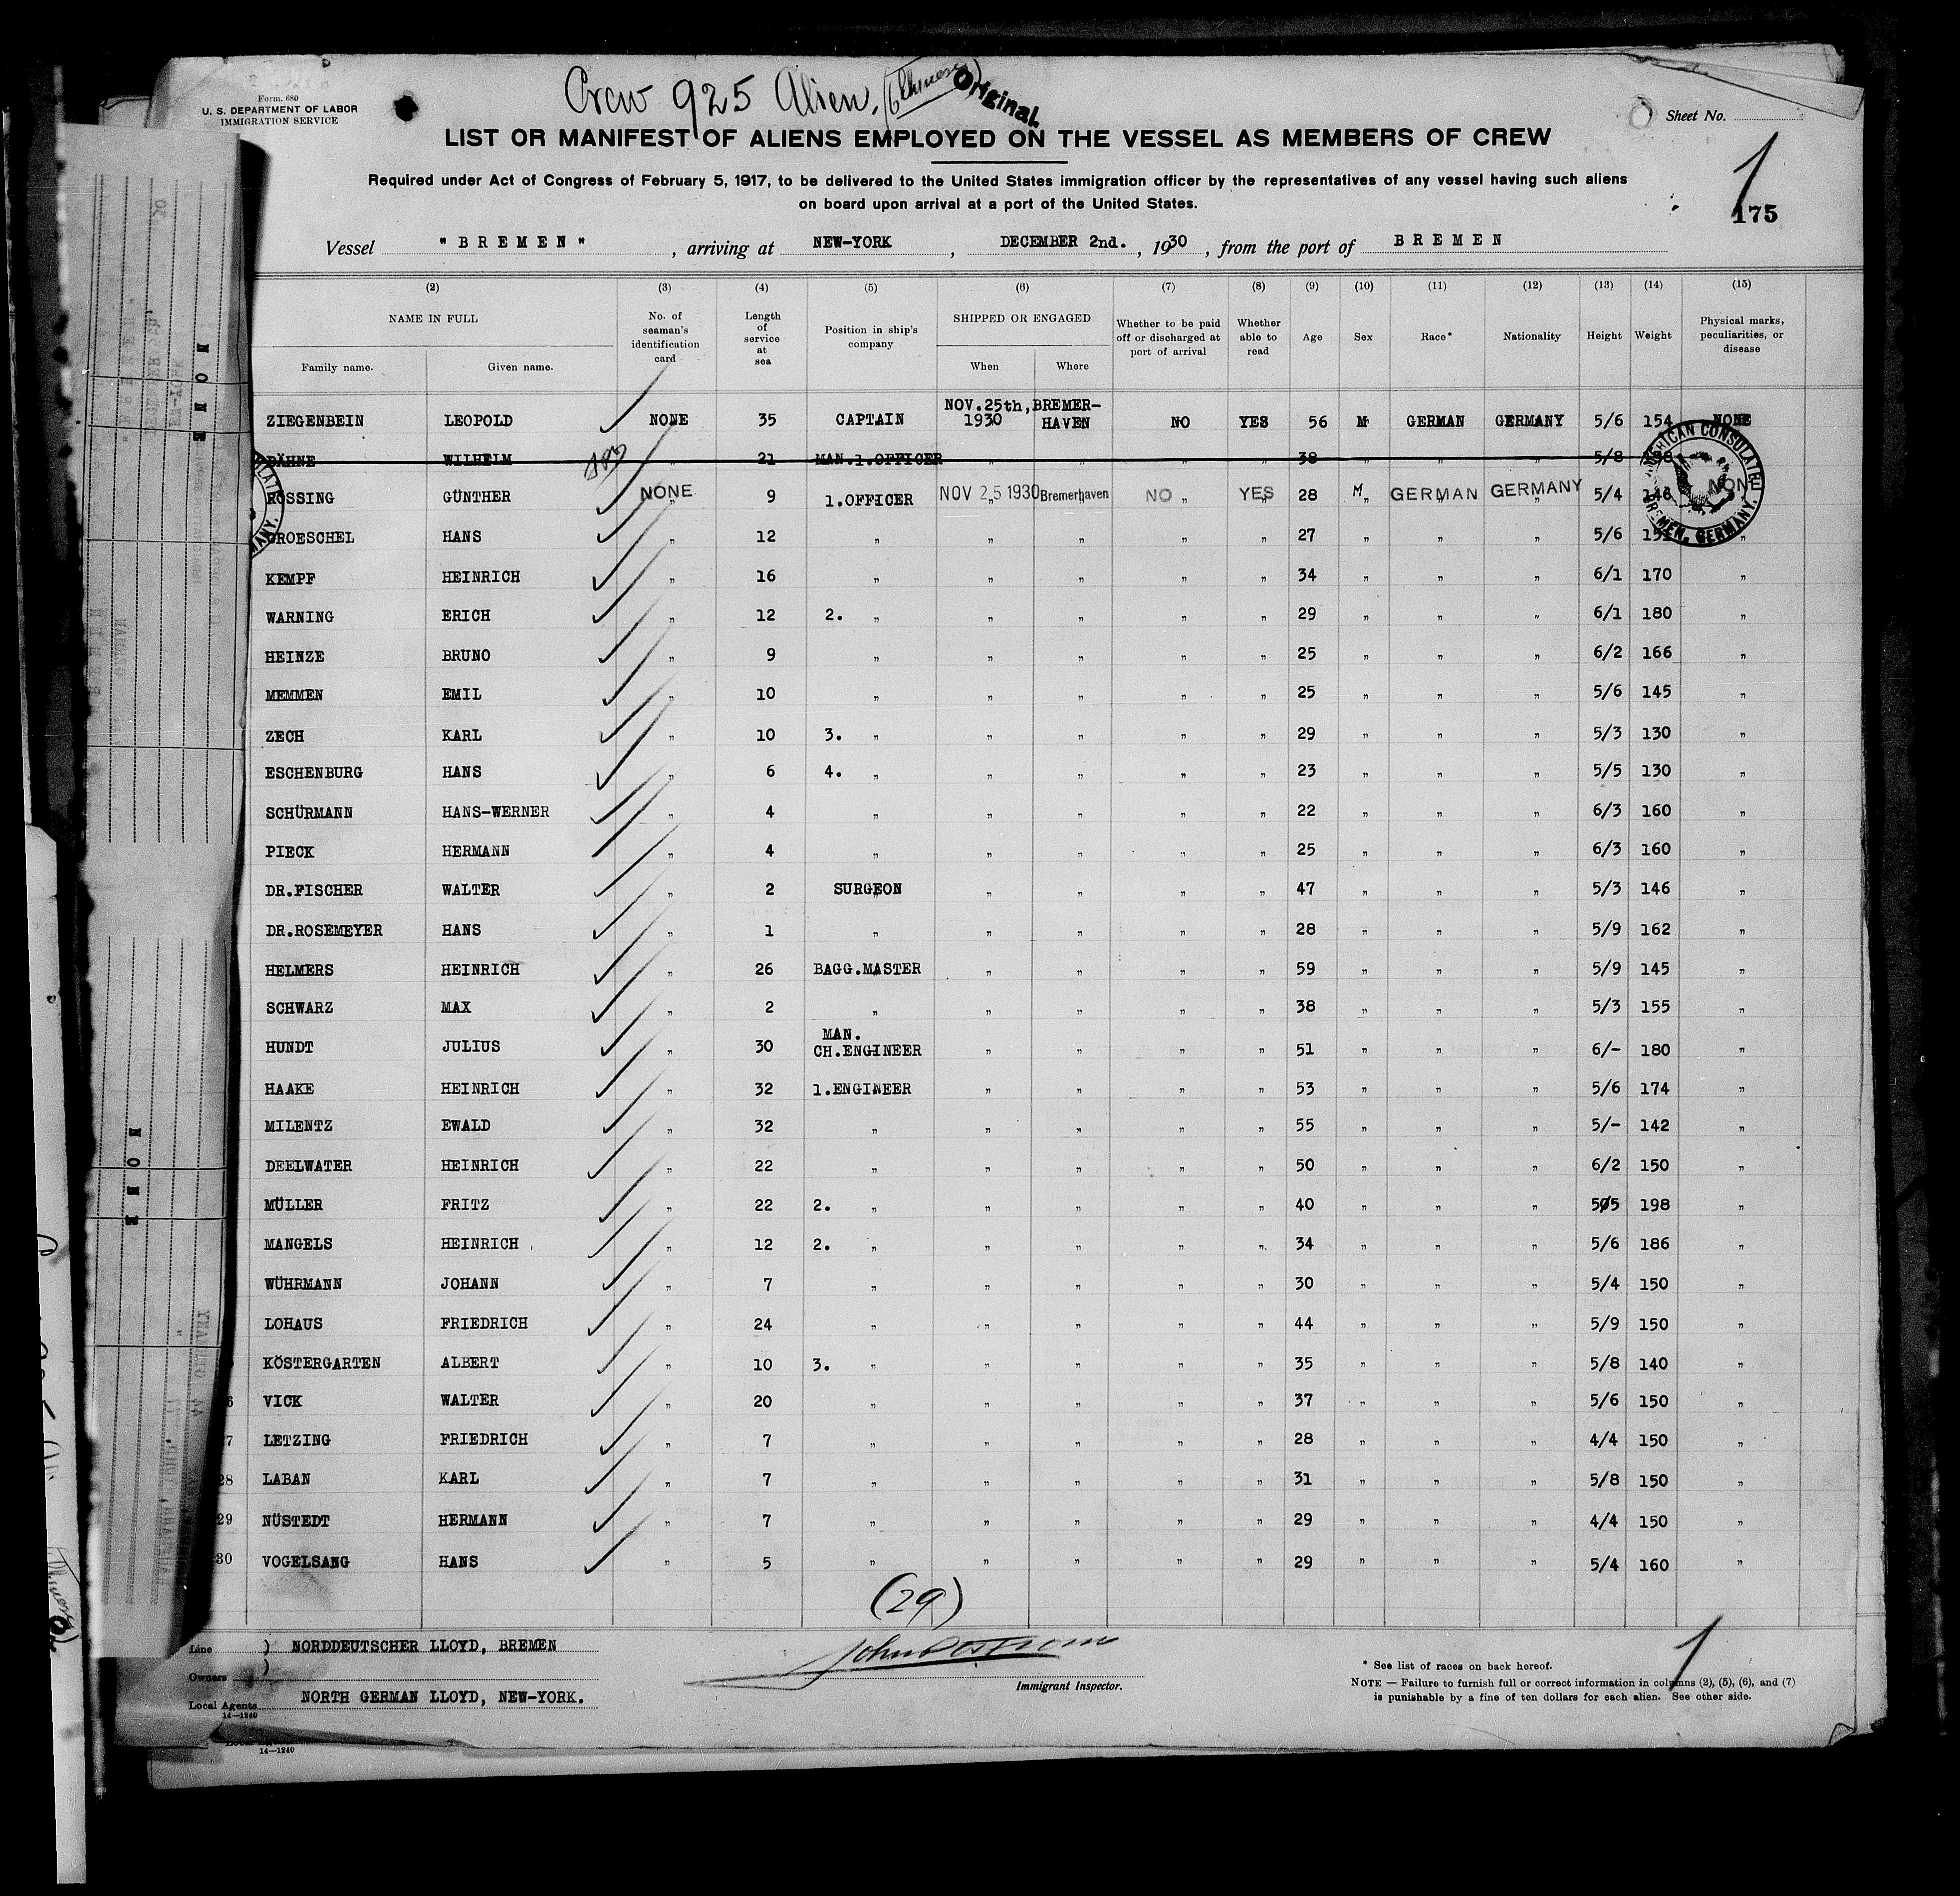 Crew 925 Alien.
Original.
Form. 680
U. S. DEPARTMENT OF LABOR
IMMIGRATION SERVICE
Sheet No.
1
LIST OR MANIFEST OF ALIENS EMPLOYED ON THE VESSEL AS MEMBERS OF CREW
Required under Act of Congress of February 5, 1917, to be delivered to the United States immigration officer by the representatives of any vessel having such aliens
on board upon arrival at a port of the United States.
175
Vessel " B R E M E N " , arriving at NEW-YORK , DECEMBER 2nd. , 1930 , from the port of B R E M E N
(2) (3) (4) (5) (6) (7) (8) (9) (10) (11) (12) (13) (14) (15)
NAME IN FULL No. of seaman's identification card Length of service at sea Position in ship's company SHIPPED OR ENGAGED Whether to be paid off or discharged at port of arrival Whether able to read Age Sex Race* Nationality Height Weight Physical marks, peculiarities, or disease
Family name. Given name. When Where
ZIEGENBEIN LEOPOLD NONE 35 CAPTAIN NOV.25th, 1930 BREMER-HAVEN NO YES 56 M GERMAN GERMANY 5/6 154 NONE
DÄHNE WILHELM " 21 MAN.1.OFFICER " " " " 38 " " " 5/8
ROSSING GÜNTHER NONE 9 1.OFFICER NOV 25 1930 Bremerhaven NO YES 28 M GERMAN GERMANY 5/4 146 NONE
AMERICAN CONSULATE BREMEN, GERMANY.
GROESCHEL HANS " 12 " " " " " 27 " " " 5/6 "
KEMPF HEINRICH " 16 " " " " " 34 " " " 6/1 170 "
WARNING ERICH " 12 2. " " " " " 29 " " " 6/1 180 "
HEINZE BRUNO " 9 " " " " " 25 " " " 6/2 166 "
MEMMEN EMIL " 10 " " " " " 25 " " " 5/6 145 "
ZECH KARL " 10 3. " " " " " 29 " " " 5/3 130 "
ESCHENBURG HANS " 6 4. " " " " " 23 " " " 5/5 130 "
SCHÜRMANN HANS-WERNER " 4 " " " " " 22 " " " 6/3 160 "
PIECK HERMANN " 4 " " " " " 25 " " " 6/3 160 "
DR.FISCHER WALTER " 2 SURGEON " " " " 47 " " " 5/3 146 "
DR.ROSEMEYER HANS " 1 " " " " " 28 " " " 5/9 162 "
HELMERS HEINRICH " 26 BAGG.MASTER " " " " 59 " " " 5/9 145 "
SCHWARZ MAX " 2 " " " " " 38 " " " 5/3 155 "
HUNDT JULIUS " 30 MAN. CH.ENGINEER " " " " 51 " " " 6/- 180 "
HAAKE HEINRICH " 32 1.ENGINEER " " " " 53 " " " 5/6 174 "
MILENTZ EWALD " 32 " " " " " 55 " " " 5/- 142 "
DEELWATER HEINRICH " 22 " " " " " 50 " " " 6/2 150 "
MÜLLER FRITZ " 22 2. " " " " " 40 " " " 5/5 198 "
MANGELS HEINRICH " 12 2. " " " " " 34 " " " 5/6 186 "
WÜHRMANN JOHANN " 7 " " " " " 30 " " " 5/4 150 "
LOHAUS FRIEDRICH " 24 " " " " " 44 " " " 5/9 150 "
KÖSTERGARTEN ALBERT " 10 3. " " " " " 35 " " " 5/8 140 "
6 VICK WALTER " 20 " " " " " 37 " " " 5/6 150 "
7 LETZING FRIEDRICH " 7 " " " " " 28 " " " 4/4 150 "
28 LABAN KARL " 7 " " " " " 31 " " " 5/8 150 "
29 NÜSTEDT HERMANN " 7 " " " " " 29 " " " 4/4 150 "
30 VOGELSANG HANS " 5 " " " " " 29 " " " 5/4 160 "
(29)
Line ) NORDDEUTSCHER LLOYD, BREMEN
Owners )
Local Agents NORTH GERMAN LLOYD, NEW-YORK.
14—1240
Immigrant Inspector.
1
* See list of races on back hereof.
NOTE — Failure to furnish full or correct information in columns (2), (5), (6), and (7)
is punishable by a fine of ten dollars for each alien. See other side.
14—1240